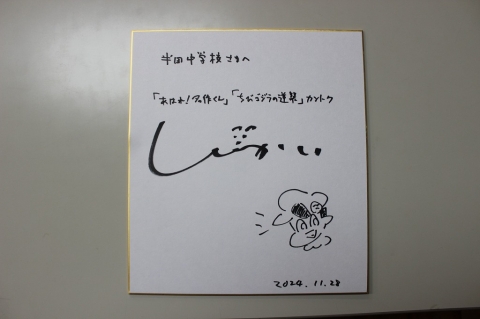 半田中学校さまへ
「あはれ!名作くん」「ちびゴジラの逆襲」カントク
しばかい
2024.11.28